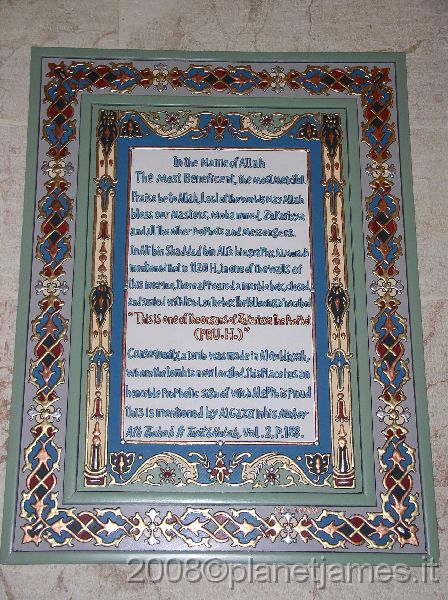 In the Name of Allah
The Most Beneficent, the most Merciful.
Praise be to Allah, Lord of the worlds May Allah
bless our Masters, Mohammed, Zakariyya
and all the other Prophets and Messengers.
Ibn Ali bin Shaddad bin
mentioned that in 1120 H, in one of the walls of
this mosque, there appeared a marble box, closed,
and sealed with lead, on the box the following is inscribed
"This is one of the organs of Zakariyya The Prophet
(PBU.H.)"
Consequently, a tomb was made in
where the tomb is now located, this Place is an
honorable Prophetic sign of which Aleppo is Proud
This is mentioned by Al Gazzi in his
Vol. 2, P. 188.
2008©planetjames.it